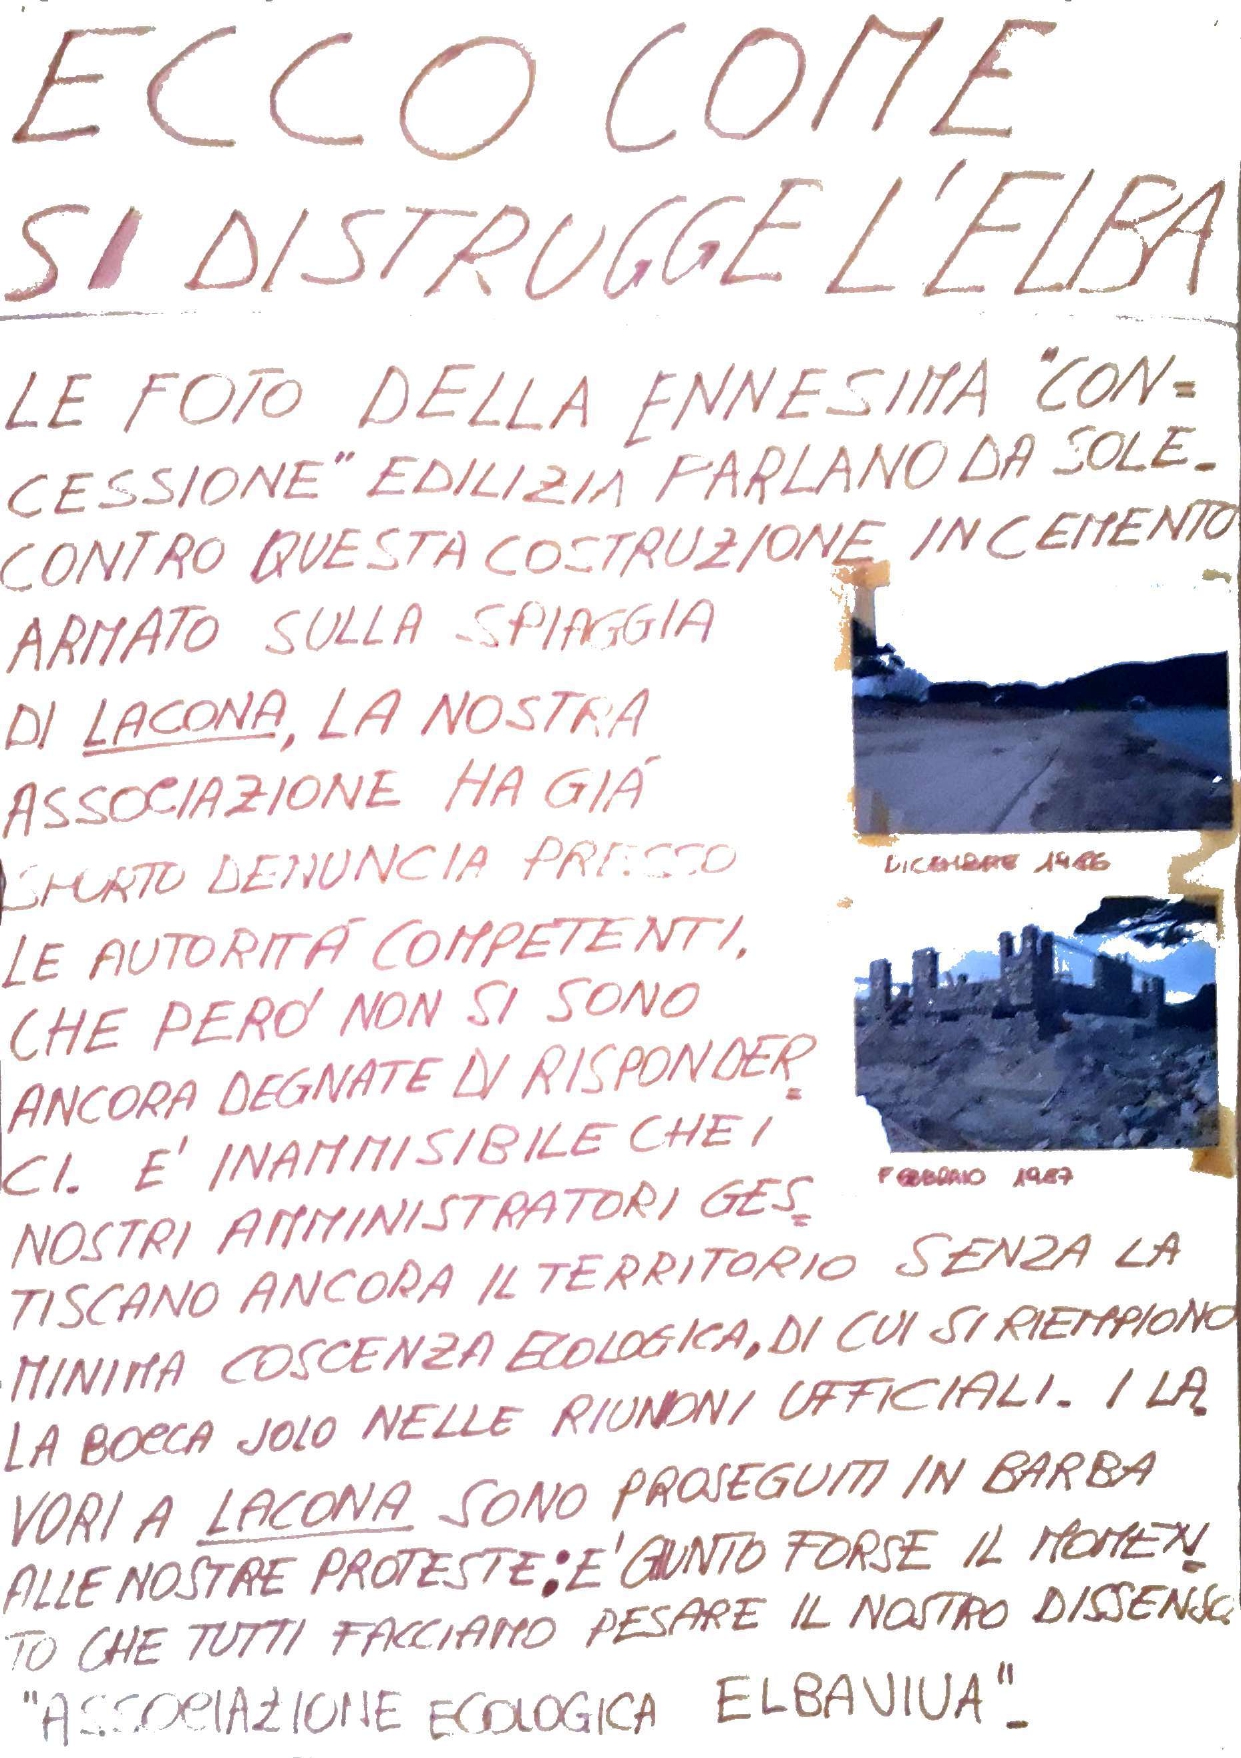 ECCO COME
SI DISTRUGGE L'ELBA
LE FOTO DELLA ENNESIMA "CON=
CESSIONE" EDILIZIA PARLANO DA SOLE_
CONTRO QUESTA COSTRUZIONE IN CEMENTO
ARMATO SULLA SPIAGGIA
DI LACONA, LA NOSTRA
ASSOCIAZIONE HA GIÁ
SPORTO DENUNCIA PRESSO
LE AUTORITÁ COMPETENTI,
CHE PERO' NON SI SONO
ANCORA DEGNATE DI RISPONDER=
CI. E' INAMMISIBILE CHE I
NOSTRI AMMINISTRATORI GES=
TISCANO ANCORA IL TERRITORIO SENZA LA
MINIMA COSCENZA ECOLOGICA, DI CUI SI RIEMPIONO
LA BOCCA SOLO NELLE RIUNIONI UFFICIALI. I LA=
VORI A LACONA SONO PROSEGUITI IN BARBA
ALLE NOSTRE PROTESTE: E' GIUNTO FORSE IL MOMEN=
TO CHE TUTTI FACCIAMO PESARE IL NOSTRO DISSENSO.
"ASSOCIAZIONE ECOLOGICA ELBAVIVA"_
DICEMBRE 1986
FEBBRAIO 1987